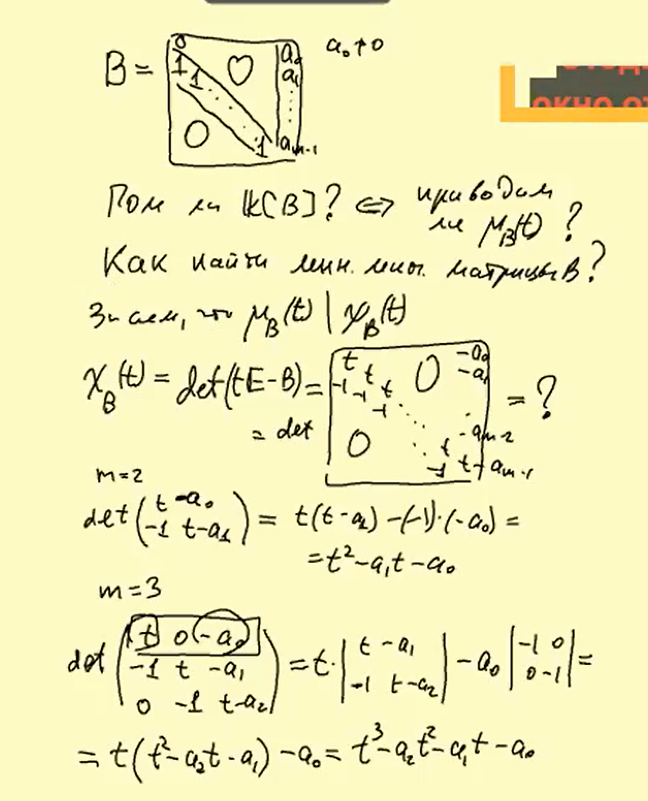 B = ( 0 0 a₀ 1 1 a₁ ⋱ ⋮ 0 1 aₘ₋₁ ) a₀ ≠ 0
Поле ли K[B]? ⟺ приводим
ли μ_B(t)?
Как найти мин. мн. матрицы B?
Знаем, что μ_B(t) | χ_B(t)
χ_B(t) = det(tE-B) =
= det ( t 0 -a₀ -1 t -a₁ -1 t -1 ⋱ -aₘ₋₂ 0 t -1 t-aₘ₋₁ ) = ?
m=2
det ( t -a₀ -1 t-a₁ ) = t(t-a₁) -(-1)·(-a₀) =
= t² - a₁t - a₀
m=3
det ( t 0 -a₀ -1 t -a₁ 0 -1 t-a₂ ) = t· | t -a₁ -1 t-a₂ | - a₀ | -1 t 0 -1 | =
= t(t² - a₂t - a₁) - a₀ = t³ - a₂t² - a₁t - a₀